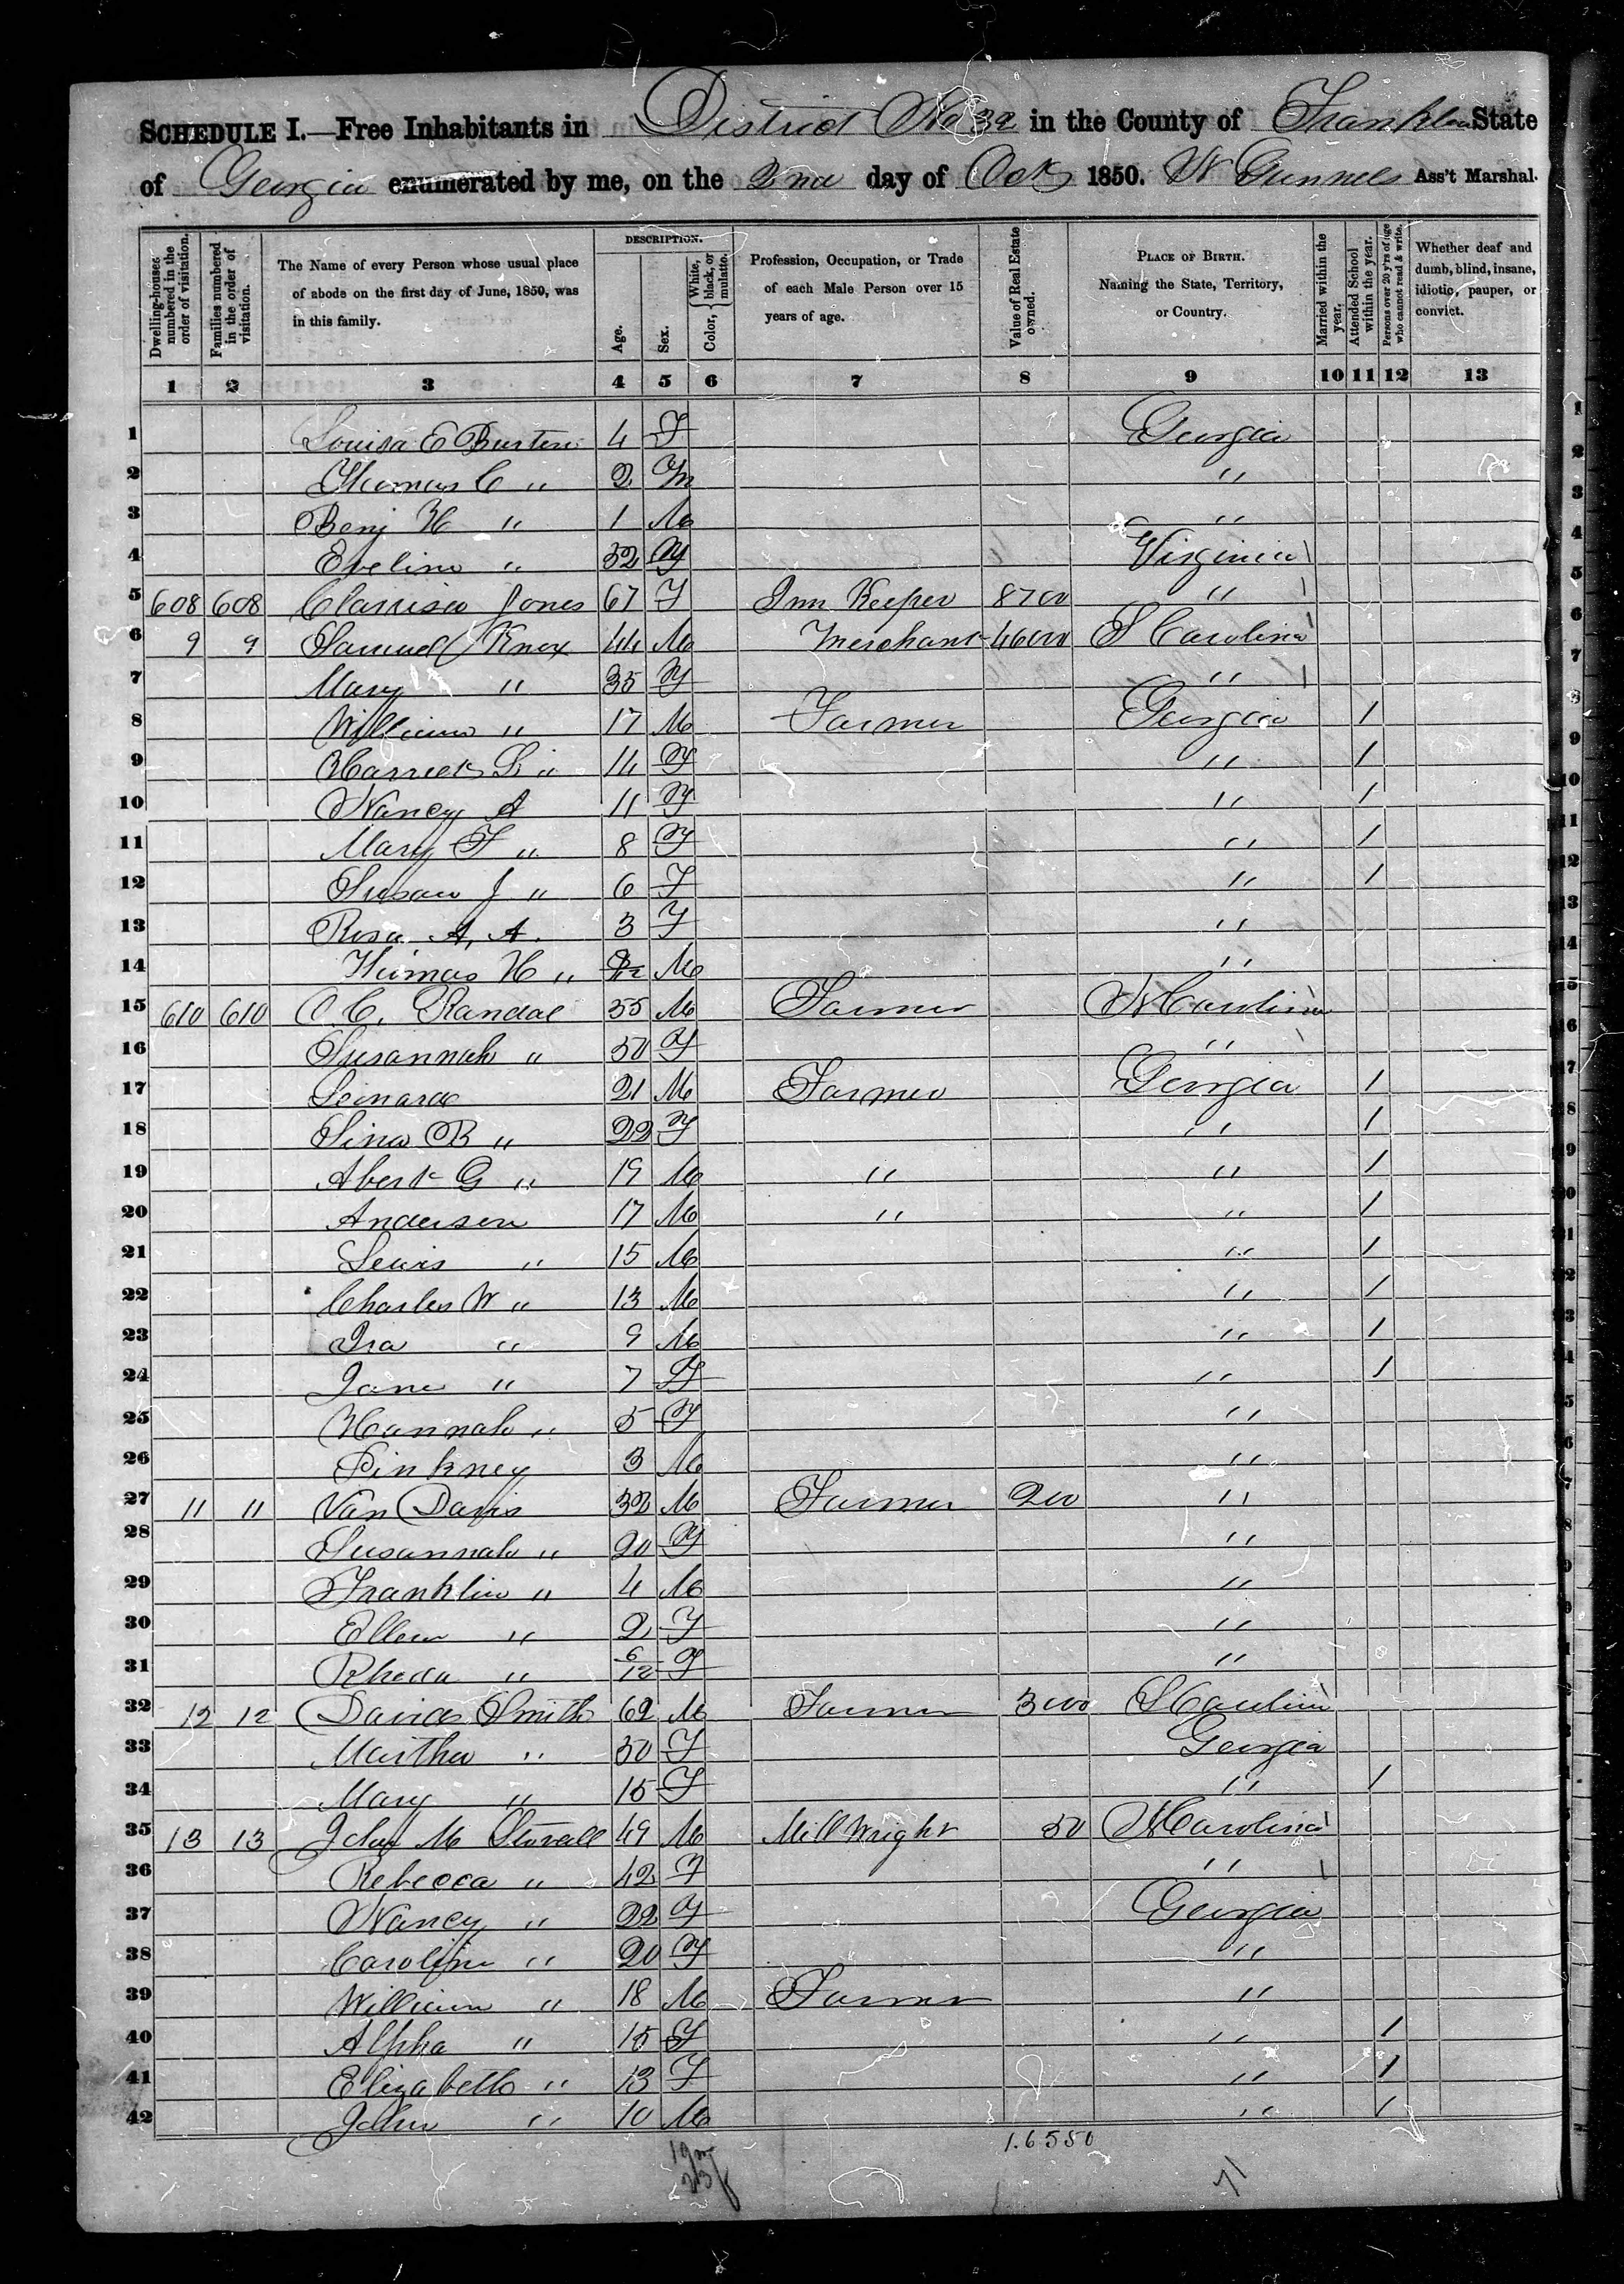 SCHEDULE I.—Free Inhabitants in District No 32 in the County of Franklin State
of Georgia enumerated by me, on the 2nd day of Oct 1850. W Gunnels Ass't Marshal.
Dwelling-houses numbered in the order of visitation. Families numbered in the order of visitation. The Name of every Person whose usual place of abode on the first day of June, 1850, was in this family. DESCRIPTION. Age. Sex. Color, { White, black, or mulatto. Profession, Occupation, or Trade of each Male Person over 15 years of age. Value of Real Estate owned. PLACE OF BIRTH. Naming the State, Territory, or Country. Married within the year. Attended School within the year. Persons over 20 y'rs of age who cannot read & write. Whether deaf and dumb, blind, insane, idiotic, pauper, or convict.
1 2 3 4 5 6 7 8 9 10 11 12 13
1 Louisa E Burton 4 F Georgia
2 Thomas C " 2 M "
3 Benj H " 1 M "
4 Eveline " 32 F Virginia
5 608 608 Clarrisa Jones 67 F Inn Keeper 8700 "
6 9 9 Samuel Knox 44 M Merchant 4600 S Carolina
7 Mary " 35 F "
8 William " 17 M Farmer Georgia 1
9 Harriet " 14 F " 1
10 Nancy A 11 F " 1
11 Mary F " 8 F " 1
12 Susan J " 6 F " 1
13 Rosa A. A. 3 F "
14 Thomas H " M "
15 610 610 O. C. Randal 55 M Farmer N Carolina
16 Susannah " 50 F "
17 Leonard 21 M Farmer Georgia 1
18 Sina B " 22 F " 1
19 Abert G " 19 M " " 1
20 Anderson 17 M " " 1
21 Lewis " 15 M " 1
22 Charles W " 13 M " 1
23 Ira " 9 M " 1
24 Jane " 7 F " 1
25 Hannah " 5 F "
26 Pinkney 3 M "
27 11 11 Van Davis 32 M Farmer 200 "
28 Susannah " 20 F "
29 Franklin " 4 M "
30 Ellen " 2 F "
31 Rhoda " 6/12 F "
32 12 12 David Smith 62 M Farmer 3000 S Carolina
33 Martha " 50 F Georgia
34 Mary " 15 F " 1
35 13 13 John M Stovall 49 M Mill Wright 50 N Carolina
36 Rebecca " 42 F "
37 Nancy " 22 F Georgia
38 Caroline " 20 F "
39 William " 18 M Farmer "
40 Alpha " 15 F " 1
41 Elizabeth " 13 F " 1
42 John " 10 M " 1
19m
23f
1.6550